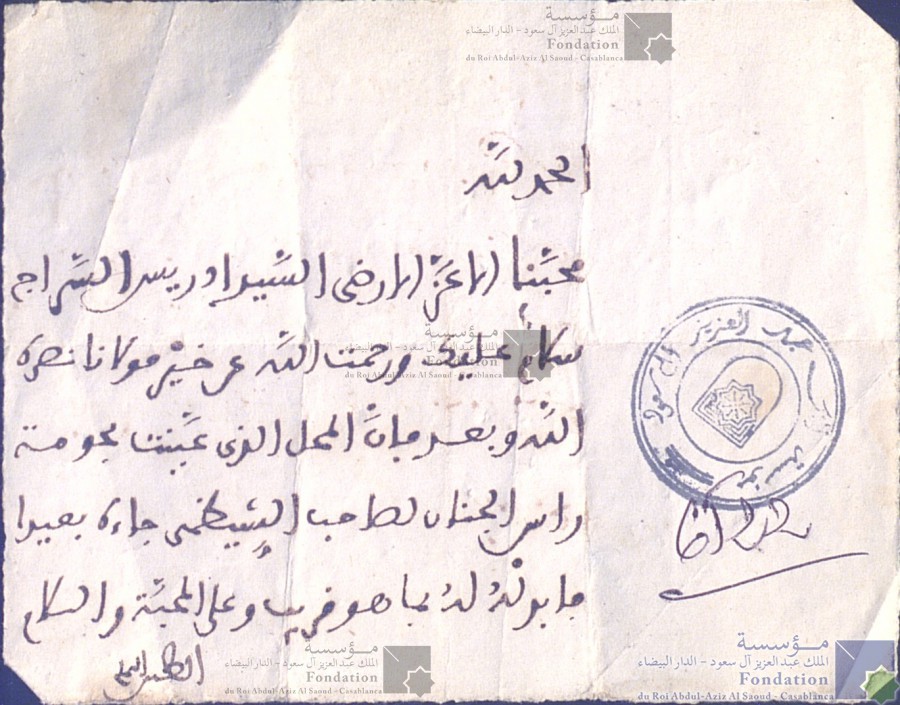 مؤسسة
الملك عبد العزيز آل سعود - الدار البيضاء
Fondation
du Roi Abdul-Aziz Al Saoud - Casablanca
الحمد لله
محبنا الاعز الارضى السيد ادريس السراج
سلام عليك ورحمت الله عن خير مولانا نصره
الله وبعد فان المحل الذي عينت بحومة
راس الجنان لصاحب الشيظمي جاءه بعيدا
فابدله له بما هو قريب وعلى المحبة والسلام
مؤسسة
الملك عبد العزيز آل سعود - الدار البيضاء
Fondation
du Roi Abdul-Aziz Al Saoud - Casablanca
عبد العزيز آل سعود
مؤسسة
الملك عبد العزيز آل سعود - الدار البيضاء
Fondation
du Roi Abdul-Aziz Al Saoud - Casablanca
مؤسسة
الملك عبد العزيز آل سعود - الدار البيضاء
Fondation
du Roi Abdul-Aziz Al Saoud - Casablanca